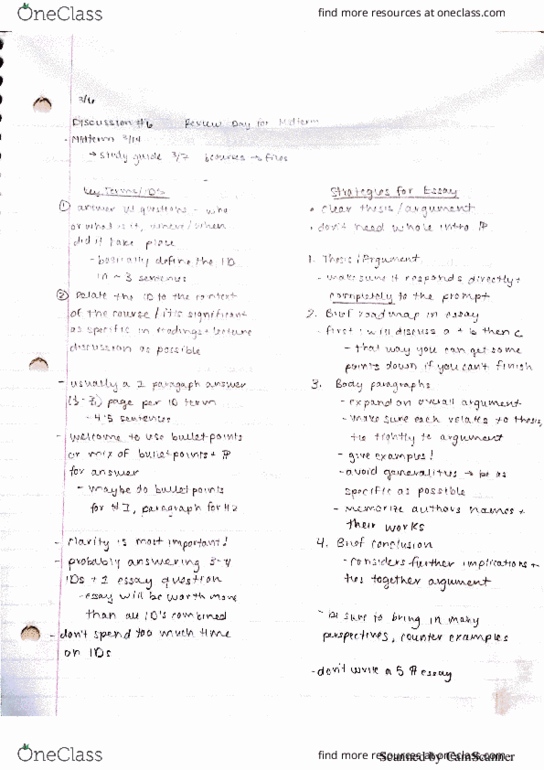 OneClass
find more resources at oneclass.com
3/6
Discussion #6 Review Day for Midterm
- Midterm 3/14
→ study guide 3/7 bcourses → files
Key Terms/ID's
① answer W questions - who
or what is it, where/when
did it take place
- basically define the ID
in ~ 3 sentences
② Relate the ID to the context
of the course / it's significant
as specific in readings + lecture
discussion as possible
- usually a 1 paragraph answer
page per ID term
- 4-5 sentences
- welcome to use bullet points
or mix of bullet points + ¶
for answer
- maybe do bullet points
for #1, paragraph for #2
- clarity is most important!
- probably answering 3-4
IDs + 1 essay question
- essay will be worth more
than all ID's combined
- don't spend too much time
on IDs
Strategies for Essay
• clear thesis/argument
• don't need whole intro ¶
1. Thesis/Argument
- make sure it responds directly +
completely to the prompt
2. Brief roadmap in essay
- first I will discuss a + b then c
- that way you can get some
points down if you can't finish
3. Body paragraphs
- expand on overall argument
- make sure each relates to thesis,
tie tightly to argument
- give examples!
- avoid generalities → be as
specific as possible
- memorize authors names +
their works
4. Brief conclusion
- considers further implications +
ties together argument
- be sure to bring in many
perspectives, counter examples
- don't write a 5 ¶ essay
OneClass
find more resources at oneclass.com
Scanned by CamScanner